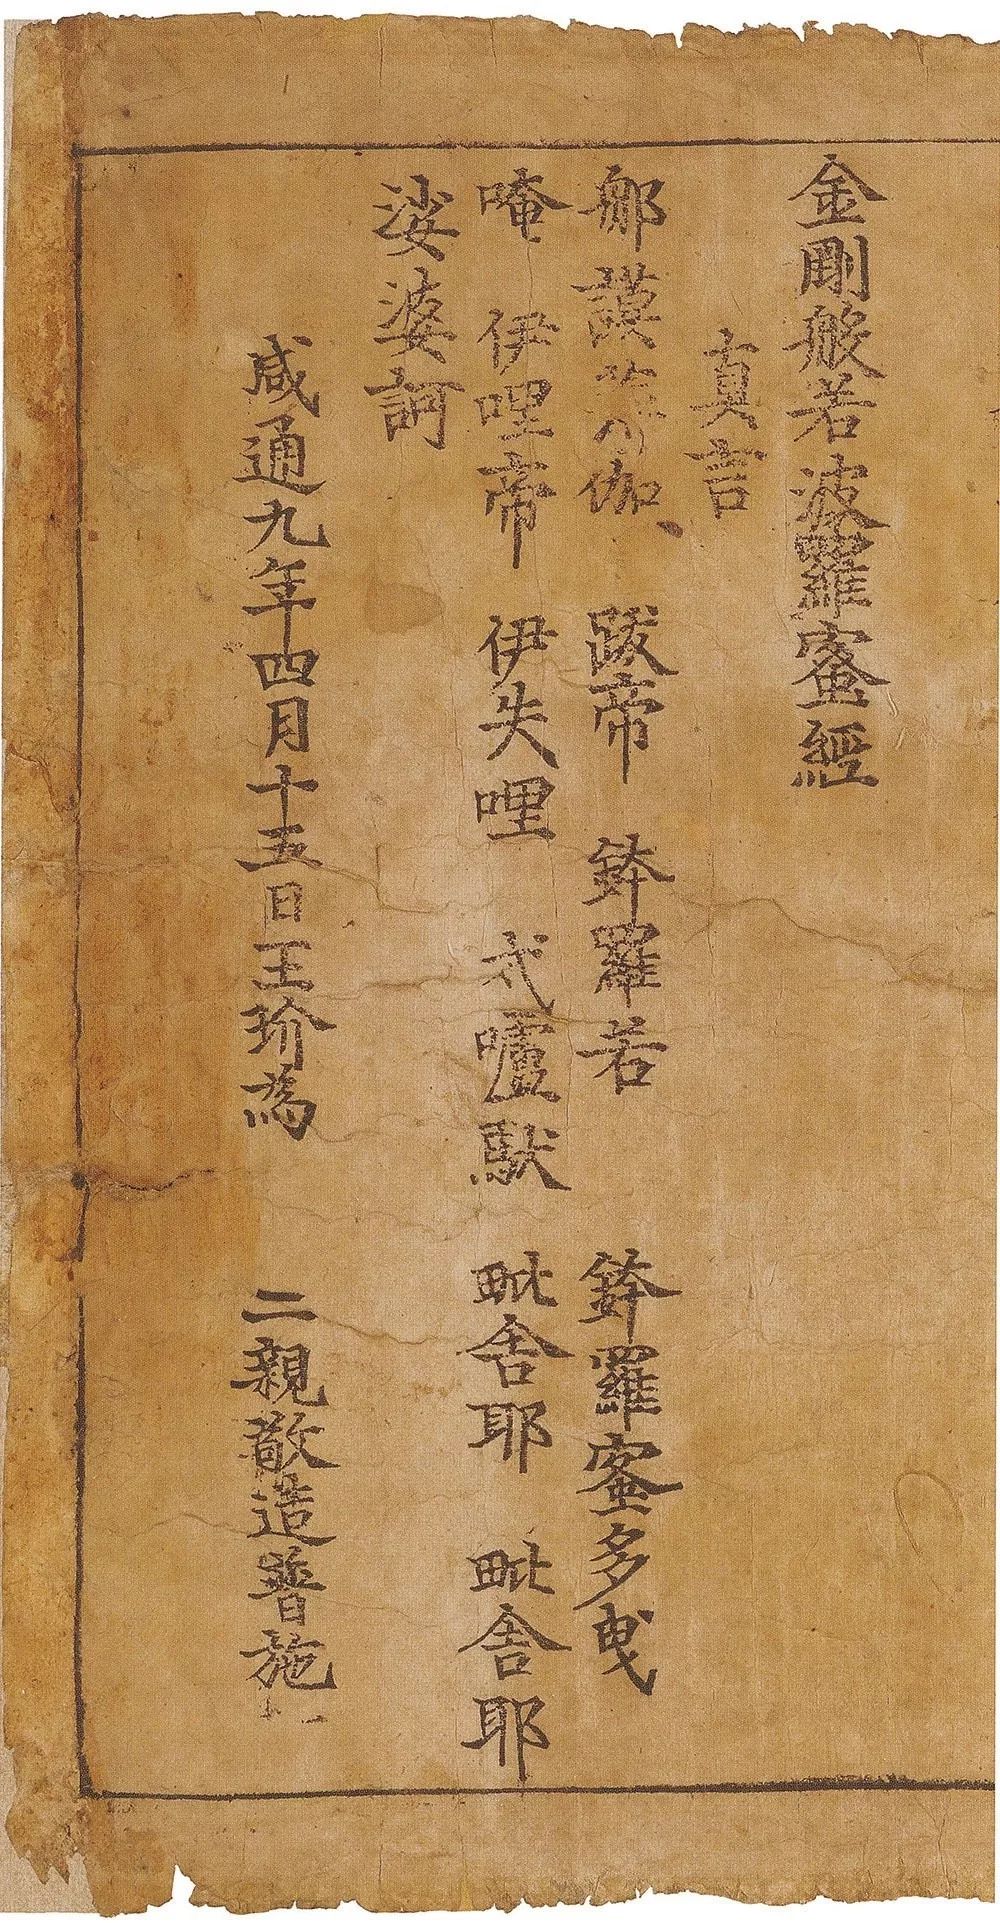 金剛般若波羅蜜經
真言
郍謨伽、 跋帝 鉢羅若 鉢羅蜜多曳
唵 伊哩帝 伊失哩 嚧馱 毗舍耶 毗舍耶
娑婆訶
咸通九年四月十五日王玠為 二親敬造普施